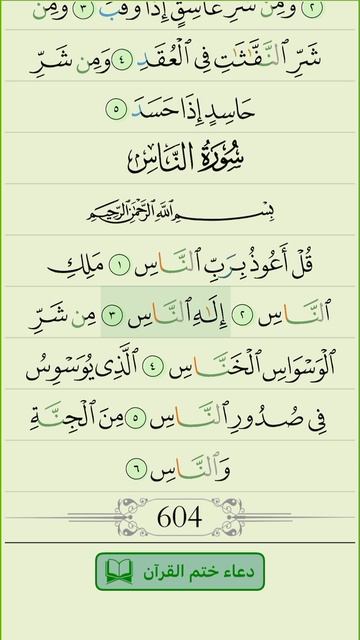 ٢ وَمِن شَرِّ غَاسِقٍ إِذَا وَقَبَ ٣ وَمِن
شَرِّ ٱلنَّفَّـٰثَـٰتِ فِى ٱلْعُقَدِ ٤ وَمِن شَرِّ
حَاسِدٍ إِذَا حَسَدَ ٥
سُورَةُ النَّاسِ
بِسْمِ اللَّهِ الرَّحْمَٰنِ الرَّحِيمِ
قُلْ أَعُوذُ بِرَبِّ ٱلنَّاسِ ١ مَلِكِ
ٱلنَّاسِ ٢ إِلَـٰهِ ٱلنَّاسِ ٣ مِن شَرِّ
ٱلْوَسْوَاسِ ٱلْخَنَّاسِ ٤ ٱلَّذِى يُوَسْوِسُ
فِى صُدُورِ ٱلنَّاسِ ٥ مِنَ ٱلْجِنَّةِ
وَٱلنَّاسِ ٦
604
دعاء ختم القرآن